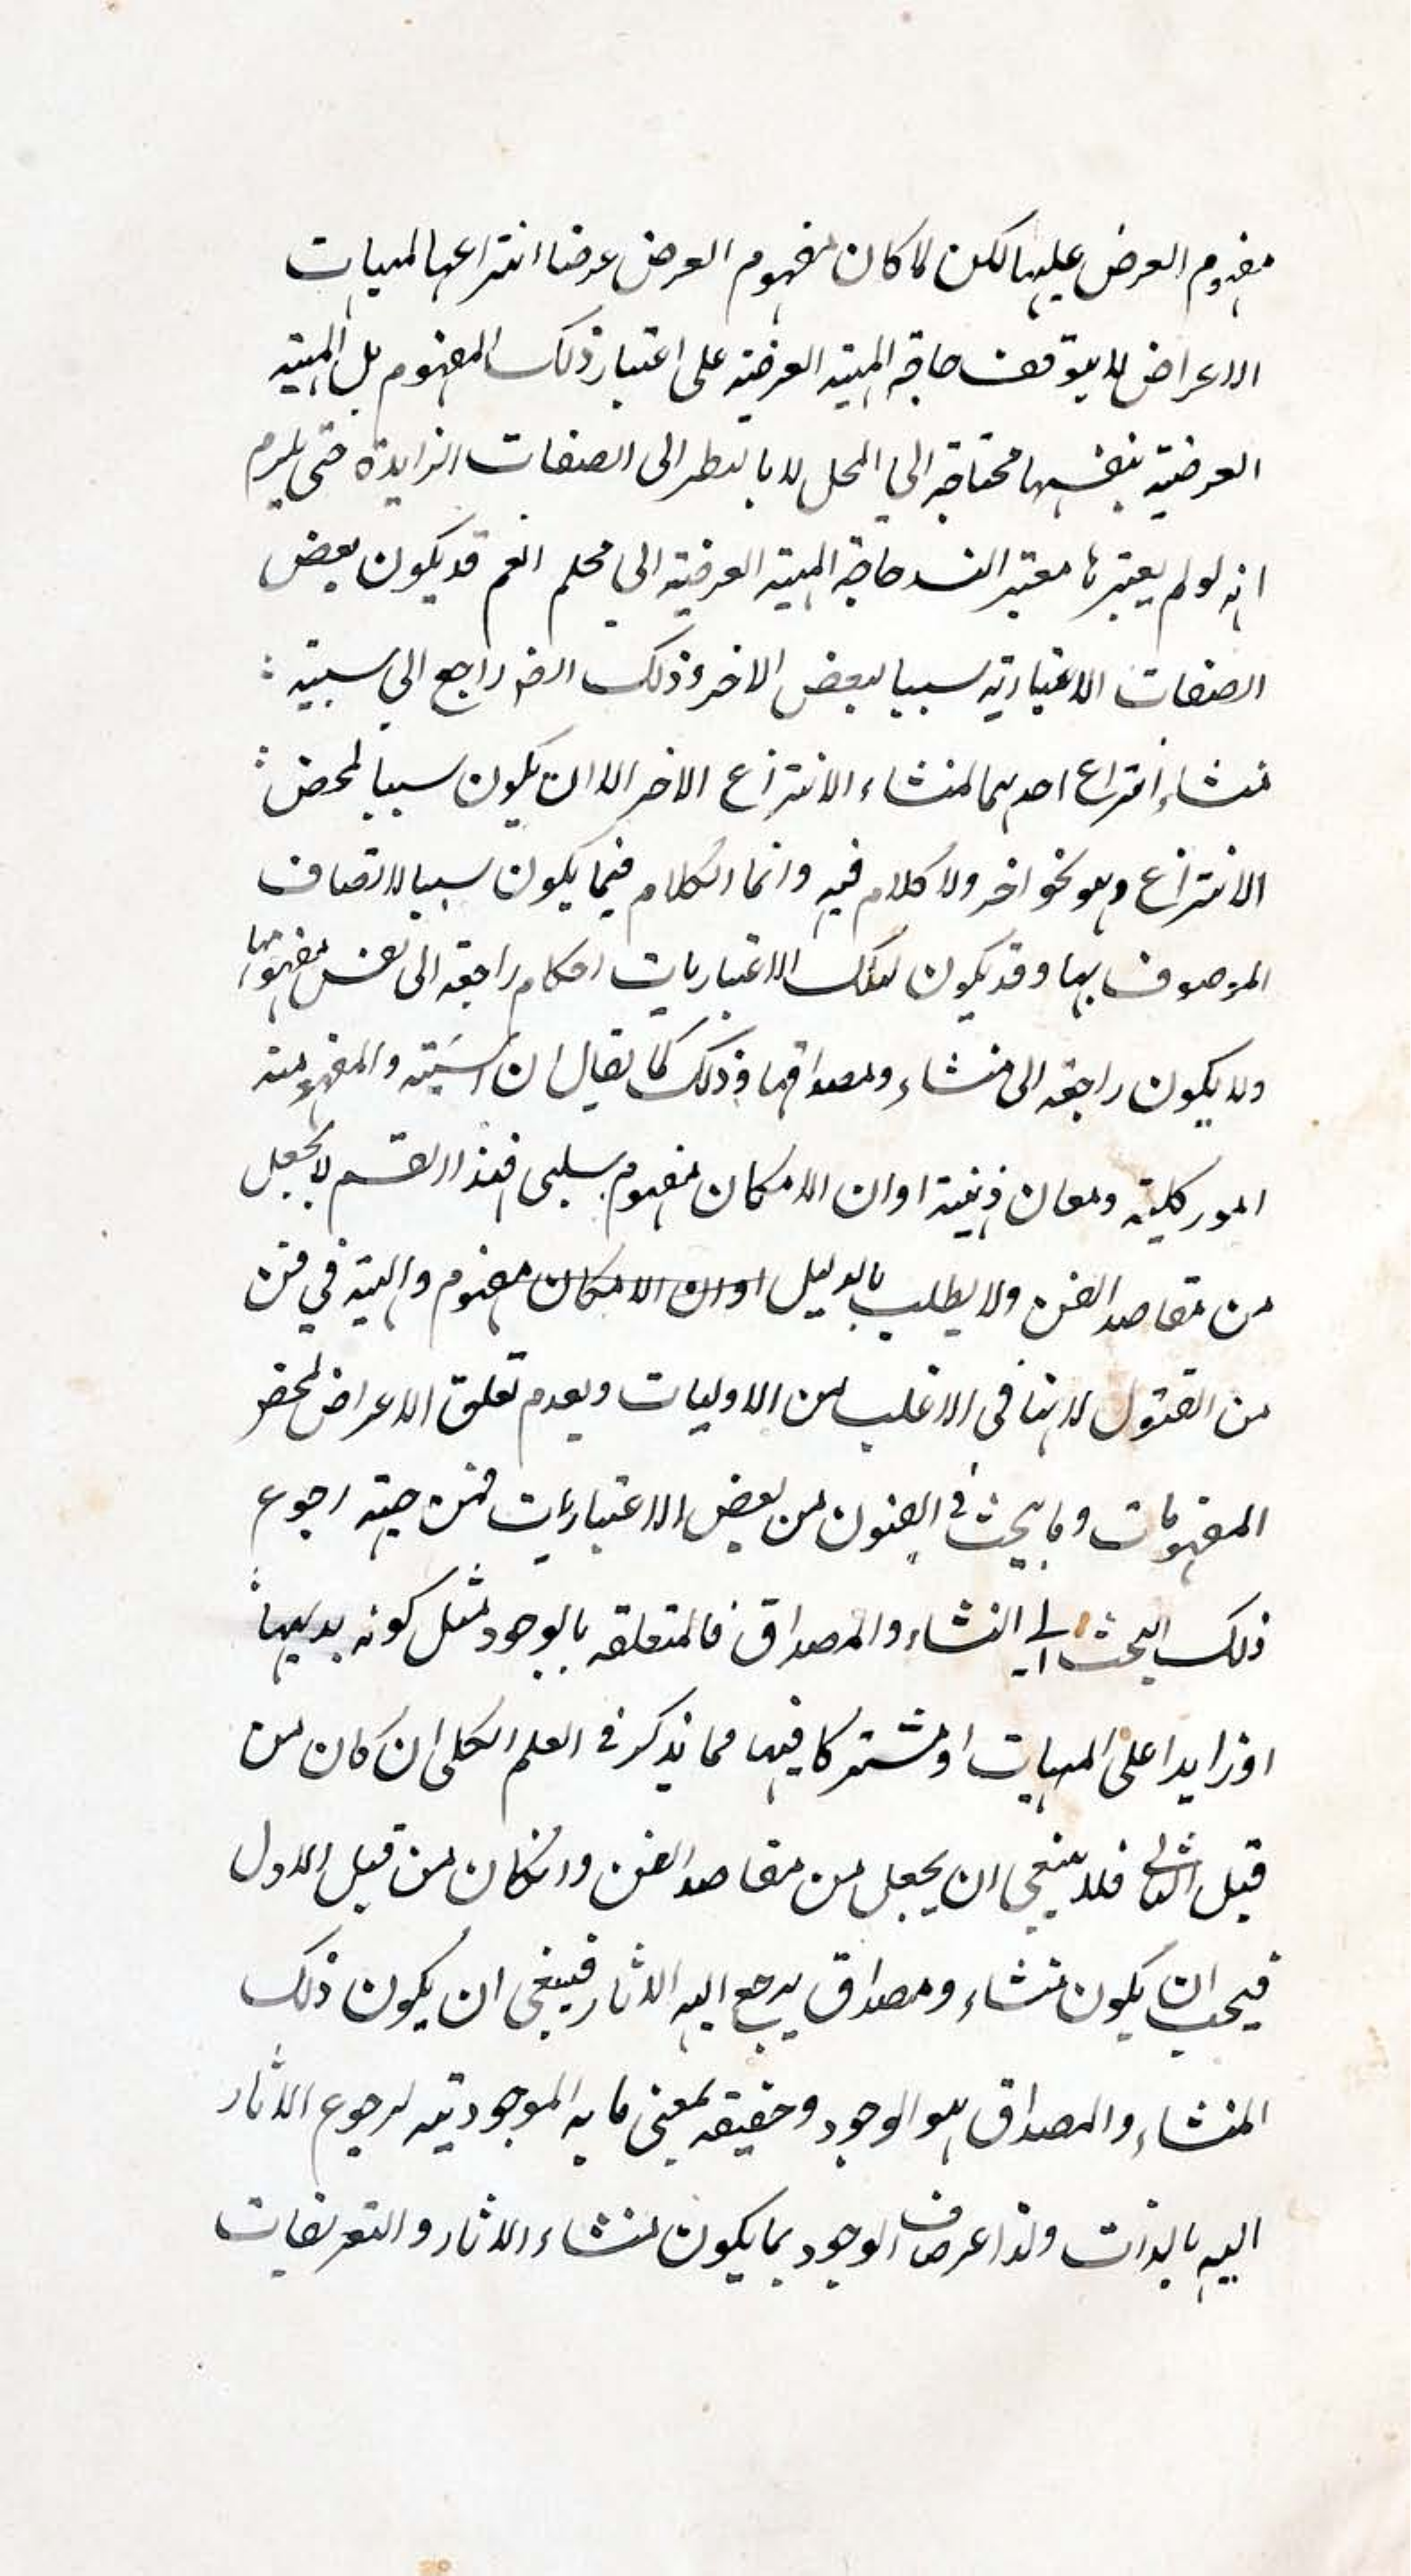 مفهوم العرض عليها لكن لما كان مفهوم العرض عرضا انتزاعها لمهيات
الاعراض لا يتوقف حاجة المهية العرضية على اعتبار ذلك المفهوم بل المهية
العرضية بنفسها محتاجة الى المحل لا بالنظر الى الصفات الزايدة حتى يلزم
انه لو لم يعتبرها معتبر حاجة المهية العرضية الى محلم انعم قد يكون بعض
الصفات الاعتبارية سببا لبعض الاخر وذلك ايضا راجع الى سببية
منشاء انتزاع احدهما لمنشاء الانتزاع الاخر الا ان يكون سببا لمحض
الانتزاع وهو نحو اخر ولا كلام فيه وانما الكلام فيما يكون سببا لاتصاف
الموصوف بها وقد يكون لتلك الاعتباريات احكام راجعة الى نفس مفهومها
ولا يكون راجعة الى منشاء ومصداقها وذلك كما يقال ان والمفهومية
امور كلية ومعان ذهنية او ان الامكان مفهوم سلبى فهذا القسم لا يجعل
من مقاصد الفن ولا يطلب بالدليل او ان الامكان مفهوم والهيته في فن
من لانها فى الاغلب من الاوليات وبعدم تعلق الاعراض لمحض
المفهومات وما يبحث فى الفنون من بعض الاعتباريات فمن جهته رجوع
ذلك البحث الى النشاء والمصداق فالمتعلقه بالوجود مثل كونه بديهيا
او زايدا على المهيات او مشتركا فيها مما يذكر فى العلم الكلى ان كان من
قبل الثانى فلا ينبغى ان يجعل من مقاصد الفن وان كان من قبل الاول
فيجب ان يكون منشاء ومصداق يرجع اليه الاثار فينبغى ان يكون ذلك
المنشاء والمصداق هو الوجود وحقيقه بمعنى ما به الموجودتيه لرجوع الاثار
اليه بالذات ولذا عرف الوجود بما يكون منشاء الاثار والتعريفات